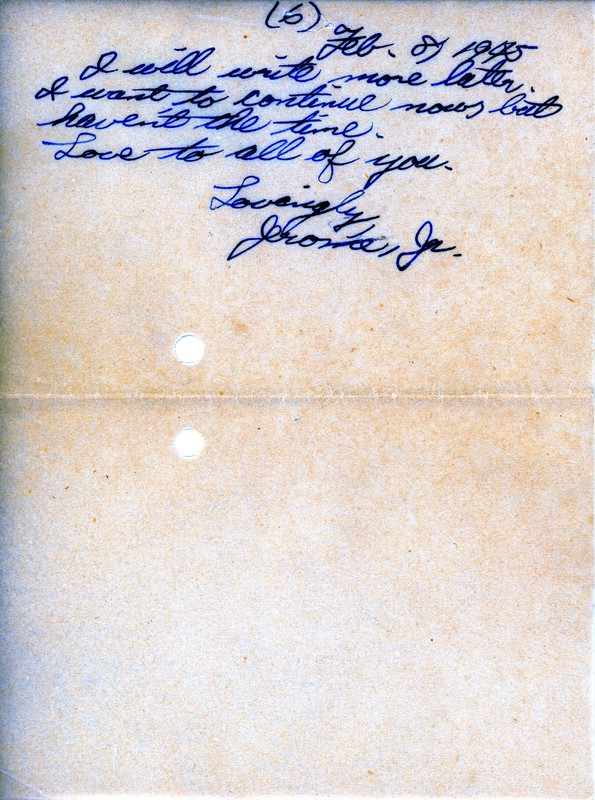 (6)
Feb. 8, 1945
I will write more later.
I want to continue now, but
haven't the time.
Love to all of you.
Lovingly,
Jerome, Jr.